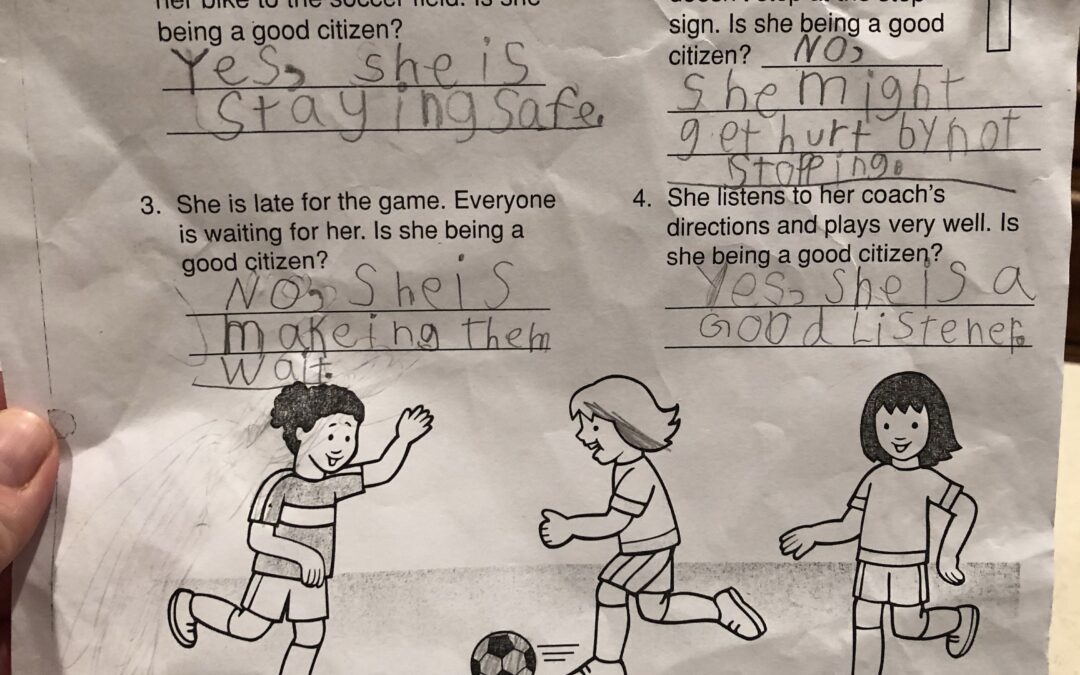 her bike to the soccer field. Is she
being a good citizen?
Yes, she is
staying safe.
doesn't stop at the stop
sign. Is she being a good
citizen? NO,
she might
get hurt by not
stopping.
3. She is late for the game. Everyone
is waiting for her. Is she being a
good citizen?
NO, She is
makeing them
wait.
4. She listens to her coach's
directions and plays very well. Is
she being a good citizen?
Yes, she is a
GOOd Listener.